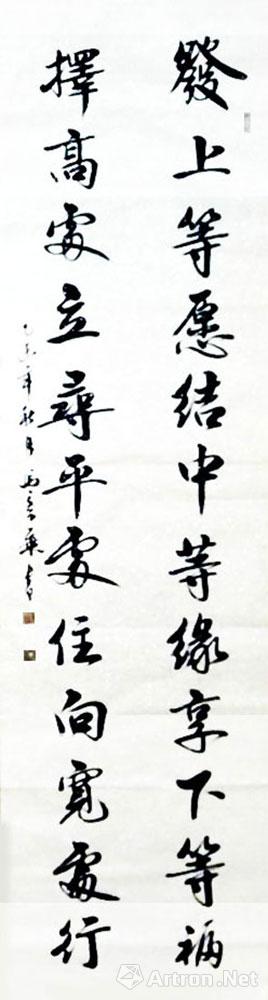 發上等愿结中等缘享下等福
擇高處立尋平處住向寬處行
乙未年秋月
Artron.Net